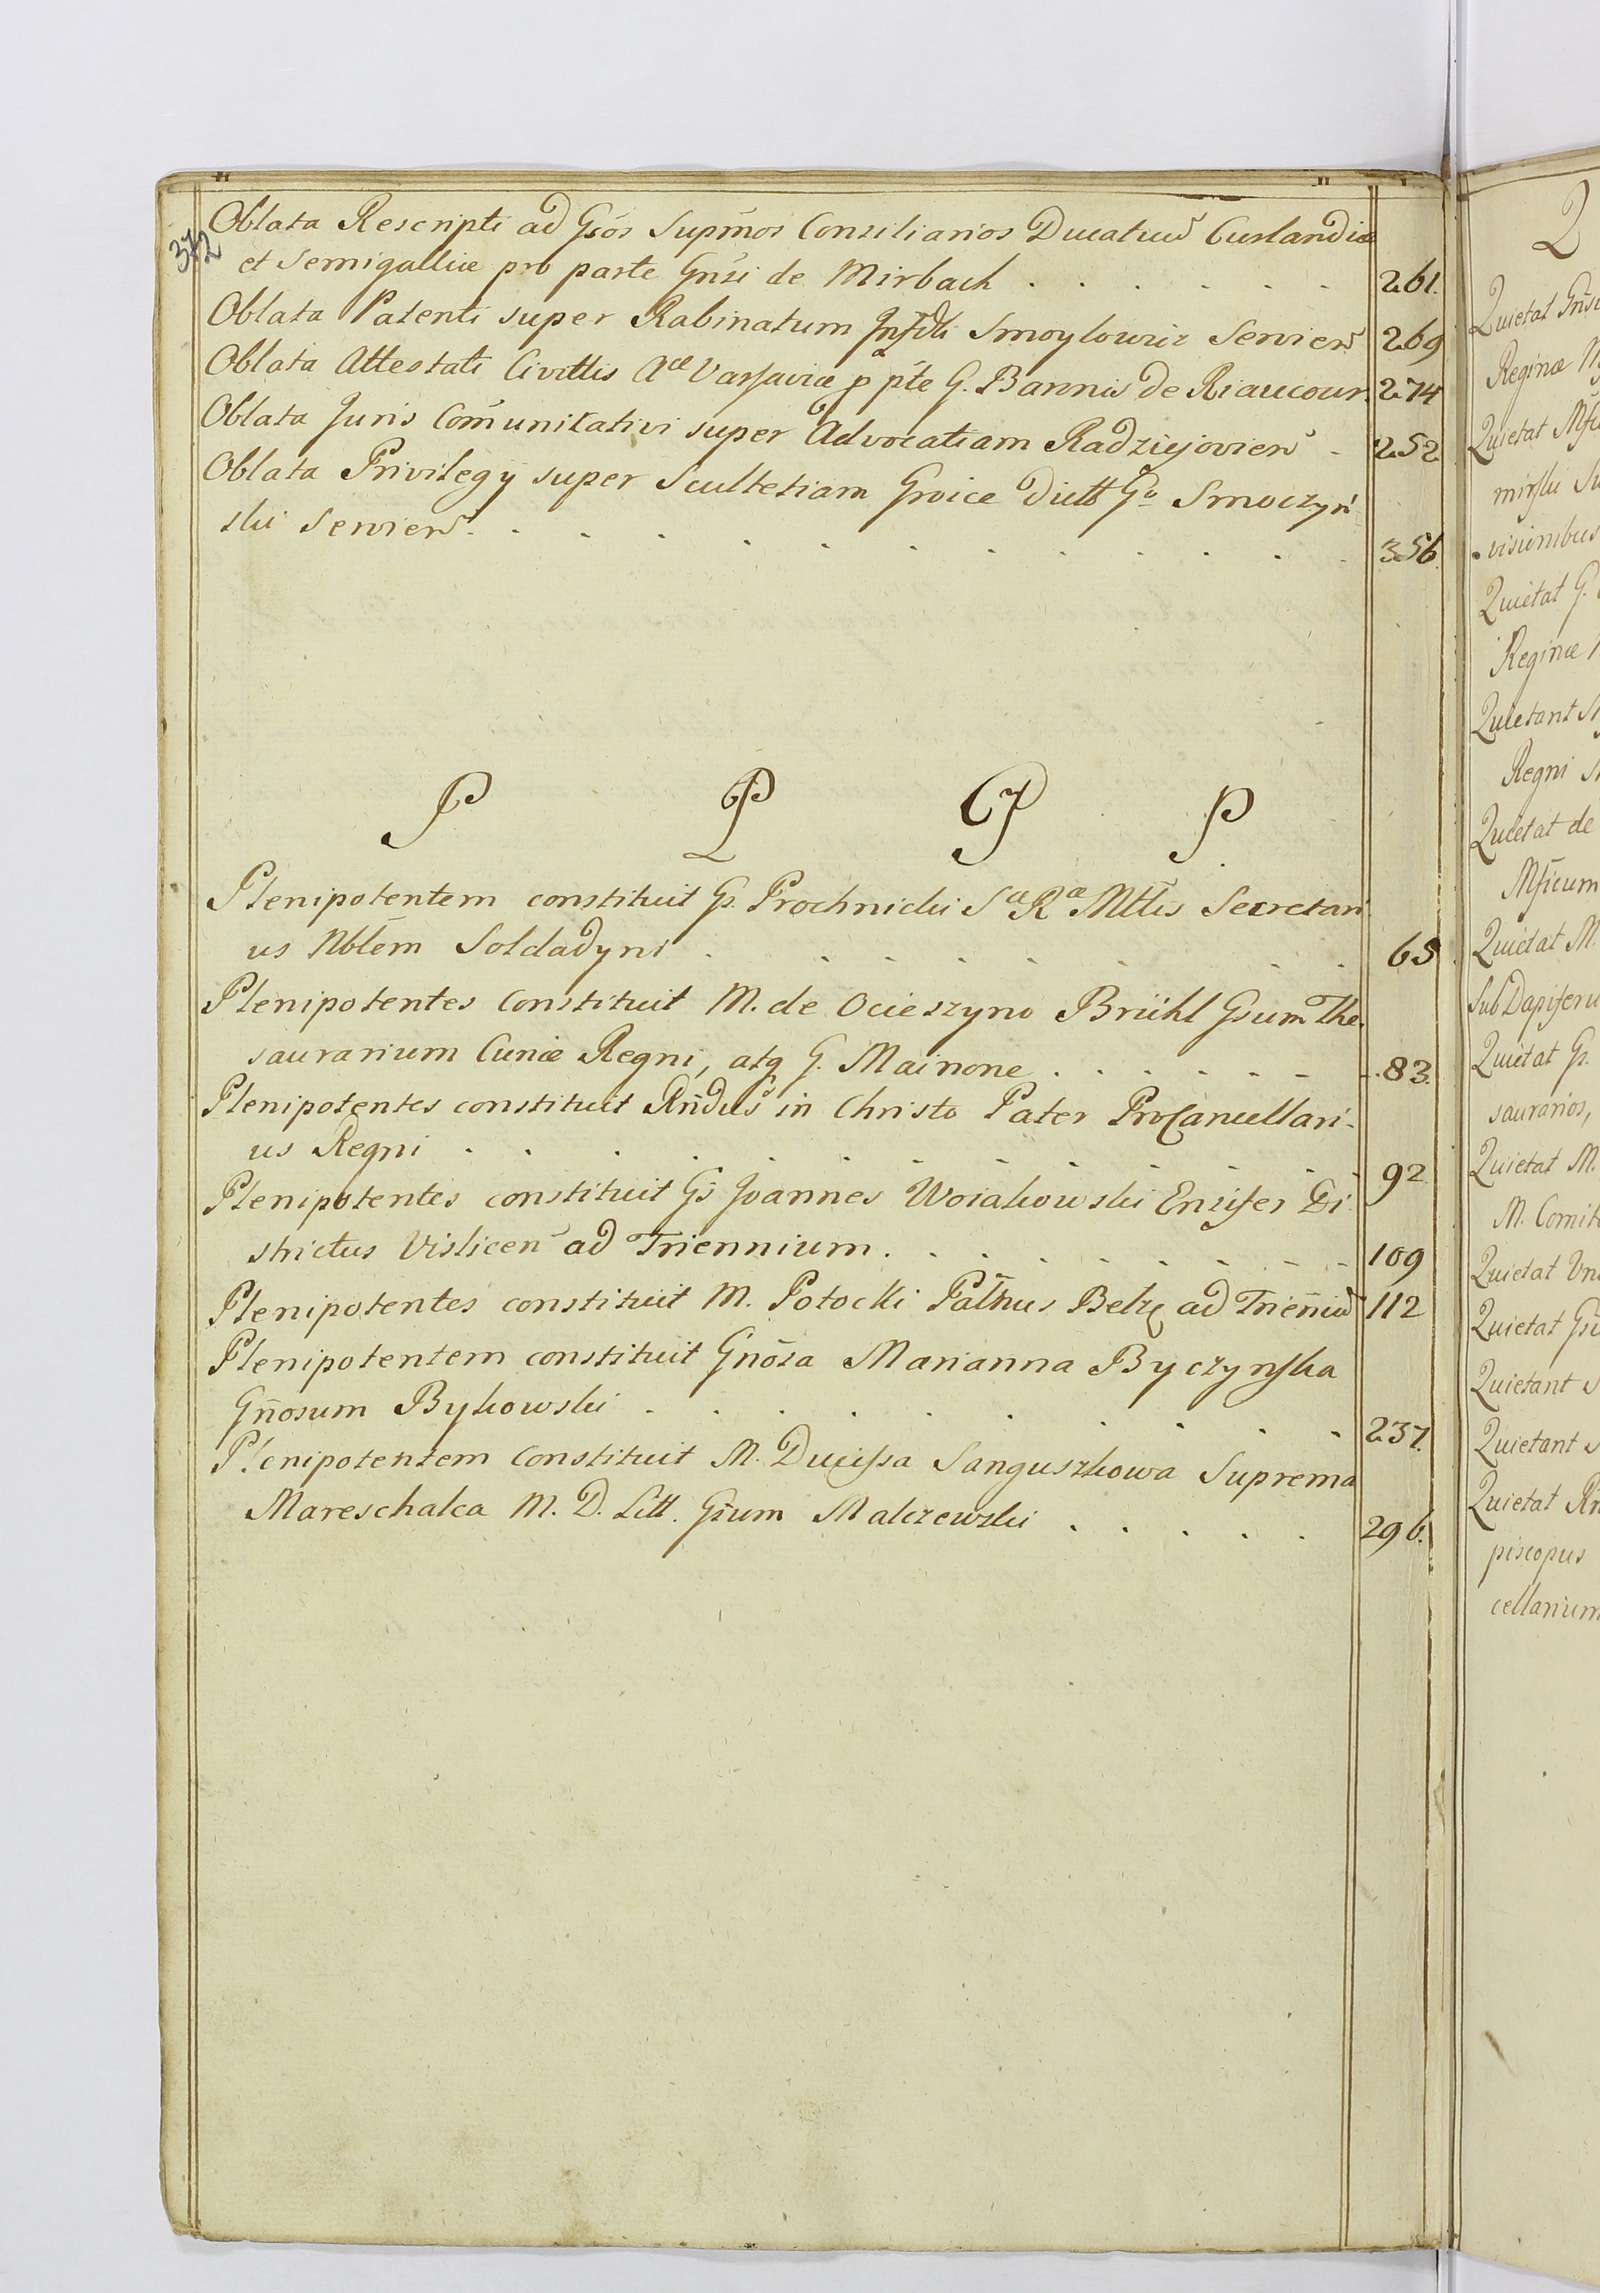 372
Oblata Rescripti ad Gsos Supm̃os Consiliarios Ducatuũ Curlandiæ
et Semigalliæ pro parte Gnsi de Mirbach . . . . . . 261.
Oblata Patenti super Rabinatum Smoylowicz Servien̄ 269
Oblata Attestati Civitlis Aæ Varsaviæ p pte G. Baronis de Riaucour. 274
Oblata Juris Com̃unicativi super Advocatiam Radziejovien̄ - 252
Oblata Privilegÿ super Scultetiam Groice dictt Go Smoczyń
ski Servien̄ . . . . . . . . . . . 356.
P P P P
Plenipotentem constituit Gs. Prochnicki Sæ Ræ Mttis Secretari
us Nblem̃ Soldadyni . . . . . . . . 65
Plenipotentes Constituit M. de Ocieszyno Brühl Gsum The-
saurarium Curiæ Regni, atq G. Mainone . . . . . . 83.
Plenipotentes constituit Rñdus̃ in Christo Pater ProCancellari-
us Regni . . . . . . . . . . . . 92
Plenipotentes constituit Gs̃ Joannes Woiakowski Ensifer Di
strictus Vislicen̄ ad Triennium . . . . . . . . 109
Plenipotentes constituit M. Potocki Palñus Belz ad Trieñiũ 112
Plenipotentem constituit Gñosa Marianna Byczynska
Gñosum Bykowski . . . . . . . . . 237.
Plenipotentem Constituit M. Ducissa Sanguszkowa Suprema
Mareschalca M. D. Litt. Gs̃um Malczewski . . . . . 296.
Q
Quietat
Reginæ
Quietat
mirski
visionibus
Quietat G.
Reginæ
Quietant
Regni
Quietat de
Mficum
Quietat M.
SubDapiferu
Quietat Gs.
saurarios,
Quietat M.
M. Comit
Quietat
Quietat
Quietant
Quietant
Quietat
piscopus
cellarium